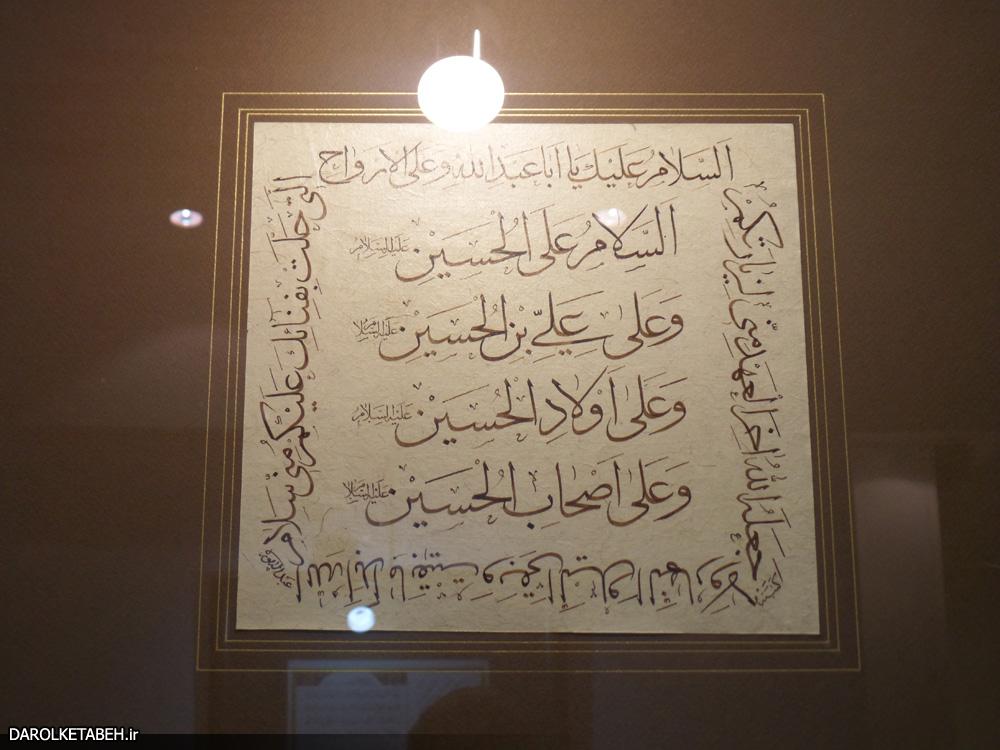 السَّلامُ عَلَيْكَ يَا أَبَا عَبْدِ اللهِ وَعَلَى الارْوَاحِ
الَّتِي حَلَّتْ بِفِنَائِكَ عَلَيْكُمْ مِنِّي سَلَامُ
اللهِ أَبَدًا مَا بَقِيتُ وَبَقِيَ اللَّيْلُ وَالنَّهَارُ وَلَا
جَعَلَهُ اللهُ آخِرَ الْعَهْدِ مِنِّي لِزِيَارَتِكُمْ
السَّلَامُ عَلَى الْحُسَيْنِ عليه السلام
وَعَلَى عَلِيِّ بْنِ الْحُسَيْنِ عليه السلام
وَعَلَى أَوْلَادِ الْحُسَيْنِ عليه السلام
وَعَلَى أَصْحَابِ الْحُسَيْنِ عليه السلام
DAROLKETABEH.ir